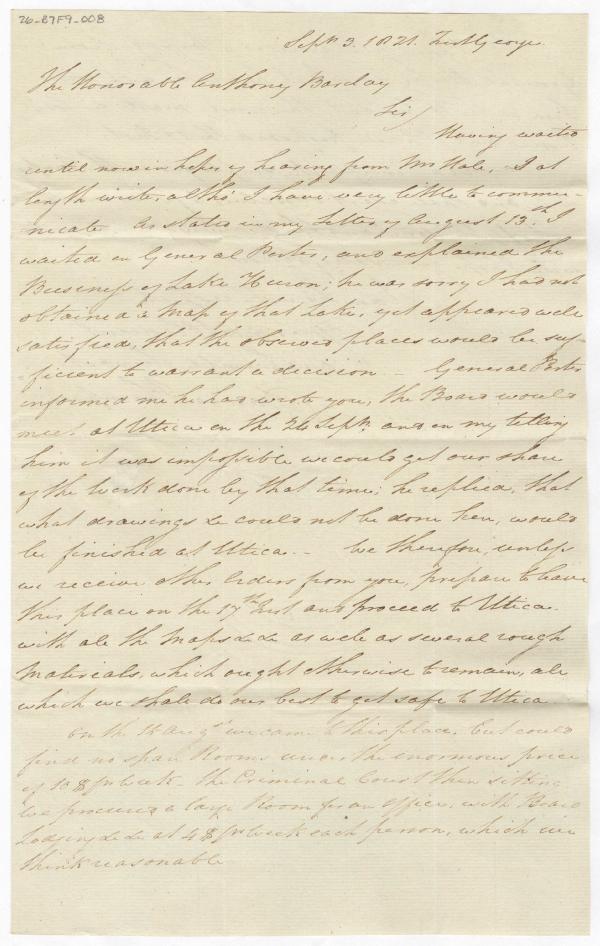 26-B7F9-008
Sept. 3. 1821. Fort George
The Honorable Anthony Barclay
Sir/
Having waited
until now in hopes of hearing from Mr Hale, I at
length write, altho' I have very little to commu-
nicate. As stated in my Letter of August 13.th I
waited on General Porter, and explained the
Business of Lake Huron; he was sorry I had not
obtained a Map of that Lake, yet appeared well
satisfied, that the observed places would be suf-
ficient to warrant a decision - General Porter
informed me he had wrote you, the Board would
meet at Utica on the 24 Sept. and on my telling
him it was impossible we could get our share
of the work done by that time; he replied, that
what drawings &c could not be done here, would
be finished at Utica. - We therefore, unless
we receive other Orders from you, prepare to leave
this place on the 17th Inst and proceed to Utica.
with all the Maps &c &c as well as several rough
Materials, which ought otherwise to remain, all
which we shall do our best to get safe to Utica
On the Augst we came to this place, but could
find no spare Rooms under the enormous price
of 10 $ pr Week - the Criminal Court then sitting
We procured a large Room for an Office, with Board
Lodging &c &c at 4 $ pr week each person, which we
think reasonable